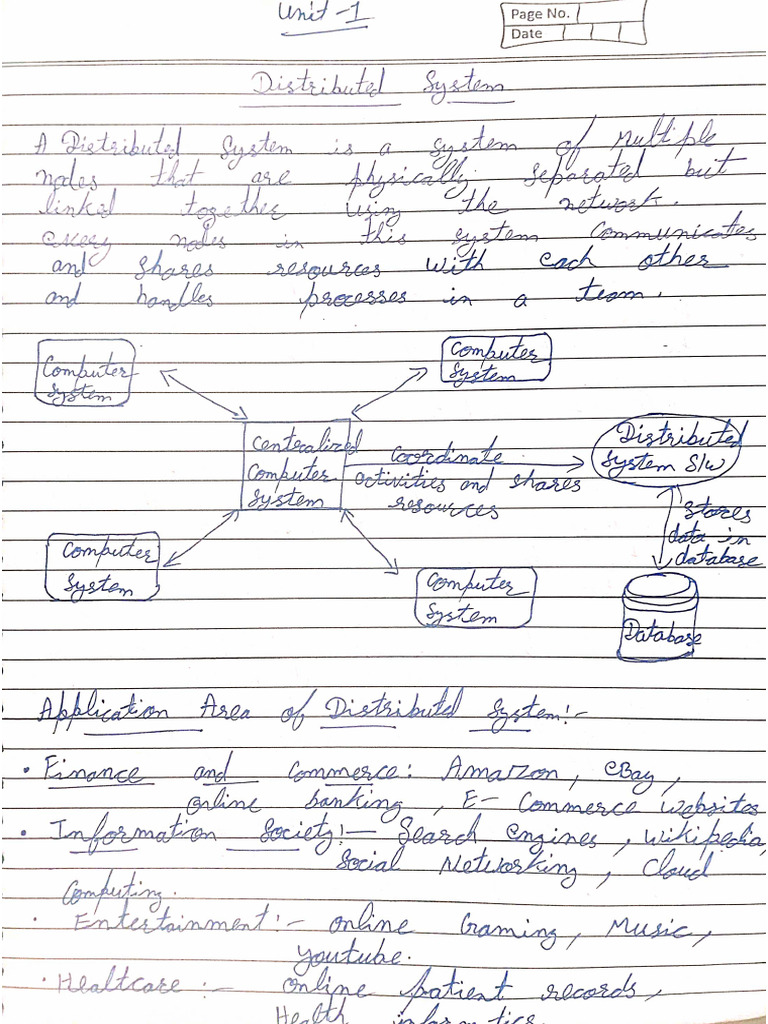 Unit-1
Page No.
Date
Distributed System
A Distributed System is a system of Multiple
nodes that are physically separated but
linked together using the network.
every nodes in this system Communicates
and shares resources with each other
and handles processes in a team.
Computer
System
Computer
System
Centralized
Computer
System
Coordinate
activities and shares
resources
Distributed
System S/W
Stores
data in
database
Computer
System
Computer
System
Database
Application Area of Distributed System:-
• Finance and Commerce: Amazon, eBay,
online banking, E-Commerce websites
• Information Society:- Search engines, Wikipedia,
Social Networking, Cloud
Computing.
• Entertainment:- online Gaming, Music,
youtube.
• Healtcare:- Online patient records,
Health informatics.